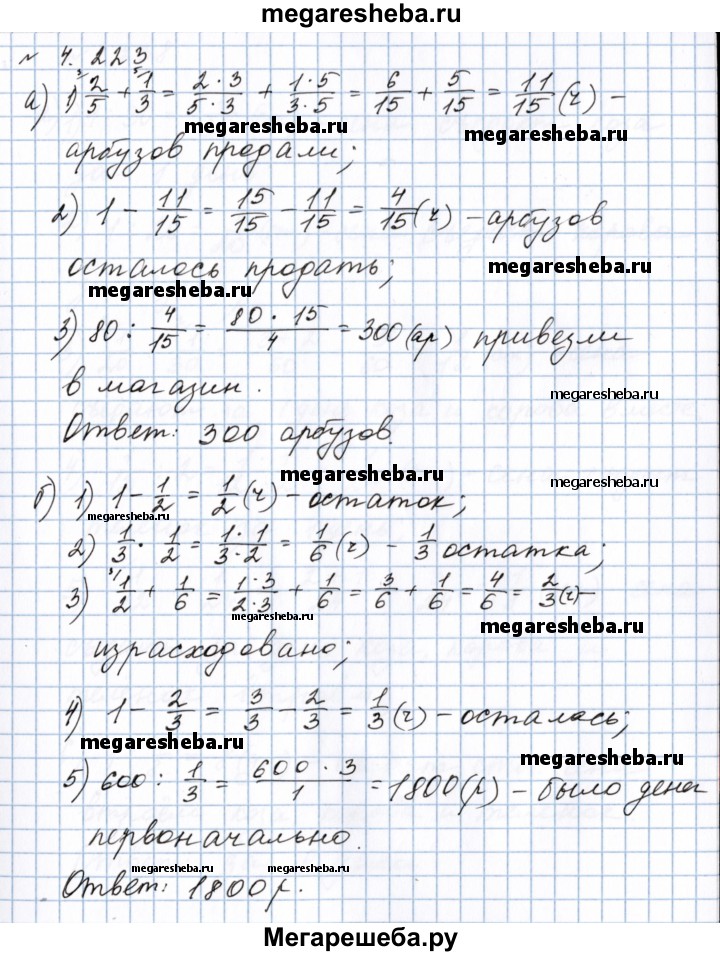 megaresheba.ru
№ 4.223
а) 1) 2/5 + 1/3 = 2·3/5·3 + 1·5/3·5 = 6/15 + 5/15 = 11/15 (ч) –
megaresheba.ru megaresheba.ru
арбузов продали;
2) 1 – 11/15 = 15/15 – 11/15 = 4/15 (ч) – арбузов
осталось продать; megaresheba.ru
megaresheba.ru
3) 80 : 4/15 = 80·15/4 = 300 (ар) привезли
в магазин. megaresheba.ru
Ответ: 300 арбузов.
megaresheba.ru megaresheba.ru
б) 1) 1 – 1/2 = 1/2 (ч) – остаток;
megaresheba.ru
2) 1/3 · 1/2 = 1·1/3·2 = 1/6 (ч) – 1/3 остатка;
3) 1/2 + 1/6 = 1·3/2·3 + 1/6 = 3/6 + 1/6 = 4/6 = 2/3 (ч) –
megaresheba.ru megaresheba.ru
израсходовано;
4) 1 – 2/3 = 3/3 – 2/3 = 1/3 (ч) – осталась;
megaresheba.ru megaresheba.ru
5) 600 : 1/3 = 600·3/1 = 1800 (р) – было денег
первоначально.
megaresheba.ru
Ответ: 1800 р. megaresheba.ru
Мегарешеба.ру